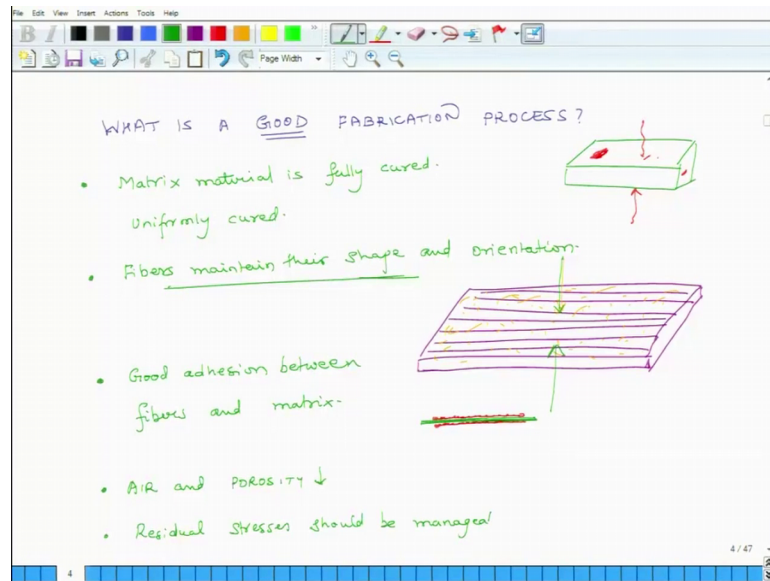 File Edit View Insert Actions Tools Help
B I
Page Width
WHAT IS A GOOD FABRICATION PROCESS?
• Matrix material is fully cured.
Uniformly cured.
• Fibers maintain their shape and orientation.
• Good adhesion between
fibers and matrix.
• AIR and POROSITY ↓
• Residual stresses should be managed
4 / 47
4